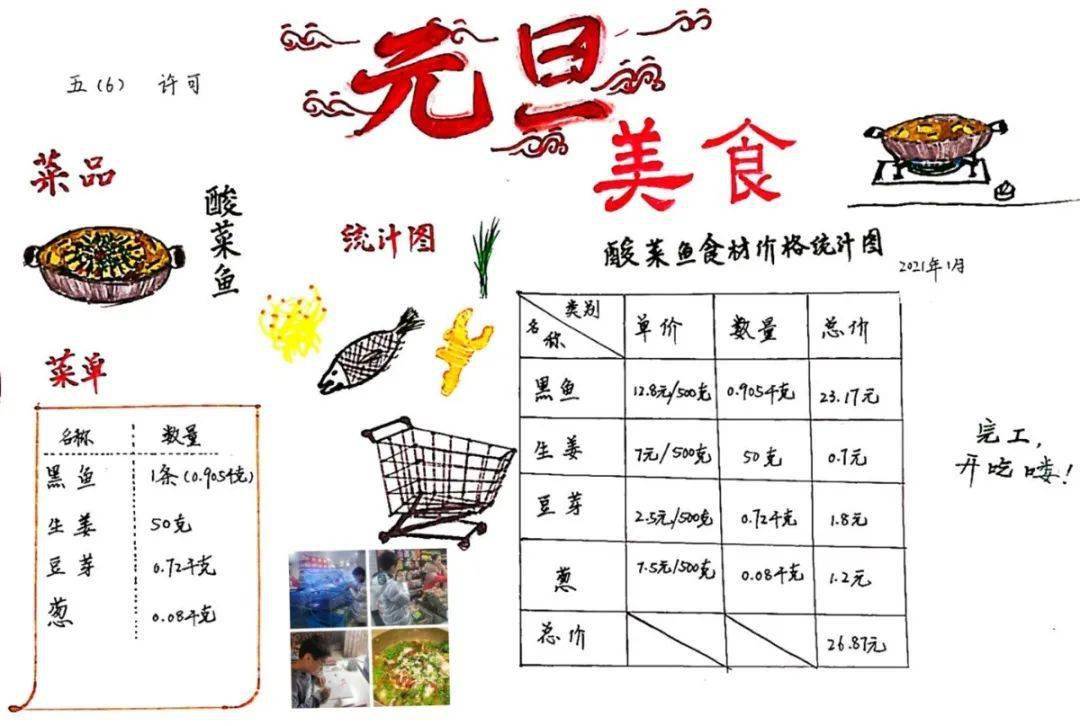 元旦
美食
五(6) 许可
菜品
酸菜鱼
统计图
菜单
名称 数量
黑鱼 1条(0.905千克)
生姜 50克
豆芽 0.72千克
葱 0.08千克
酸菜鱼食材价格统计图
2021年1月
类别
名称 单价 数量 总价
黑鱼 12.8元/500克 0.905千克 23.17元
生姜 7元/500克 50克 0.7元
豆芽 2.5元/500克 0.72千克 1.8元
葱 7.5元/500克 0.08千克 1.2元
总价 26.87元
完工,
开吃喽!